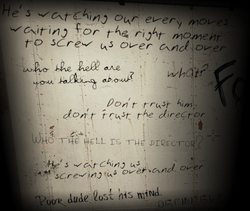 He's watching our every moves
waiting for the right moment
to screw us over and over
who the hell are
you talking about?
what?
Don't trust him,
don't trust the director
WHO THE HELL IS THE DIRECTOR?
He's watching us
screwing us over and over
Poor dude lost his mind.